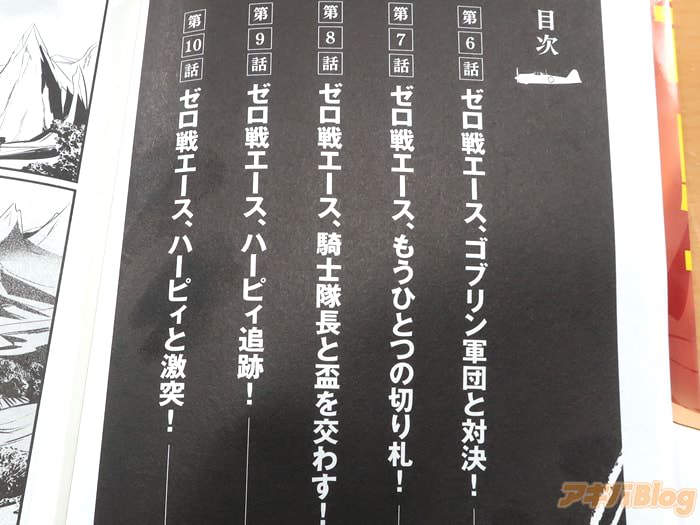 目次
第6話 ゼロ戦エース、ゴブリン軍団と対決!
第7話 ゼロ戦エース、もうひとつの切り札!
第8話 ゼロ戦エース、騎士隊長と盃を交わす!
第9話 ゼロ戦エース、ハーピィ追跡!
第10話 ゼロ戦エース、ハーピィと激突!
アキバBlog